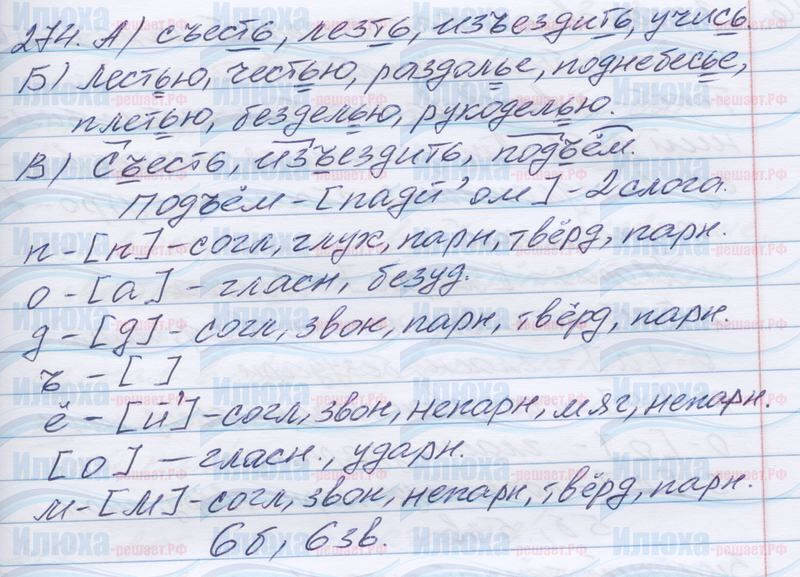 274. А) съесть, лезть, изъездить, учись.
Б) лестью, честью, раздолье, поднебесье,
плетью, безделью, рукоделью.
В) съесть, изъездить, подъём.
Подъём - [падй'ом] - 2 слога.
п - [п] - согл, глух, парн, твёрд, парн.
о - [а] - гласн, безуд.
д - [д] - согл, звон, парн, твёрд, парн.
ъ - [ ]
ё - [й'] - согл, звон, непарн, мяг, непарн.
[о] - гласн., ударн.
м - [м] - согл, звон, непарн, твёрд, парн.
6б, 6зв.